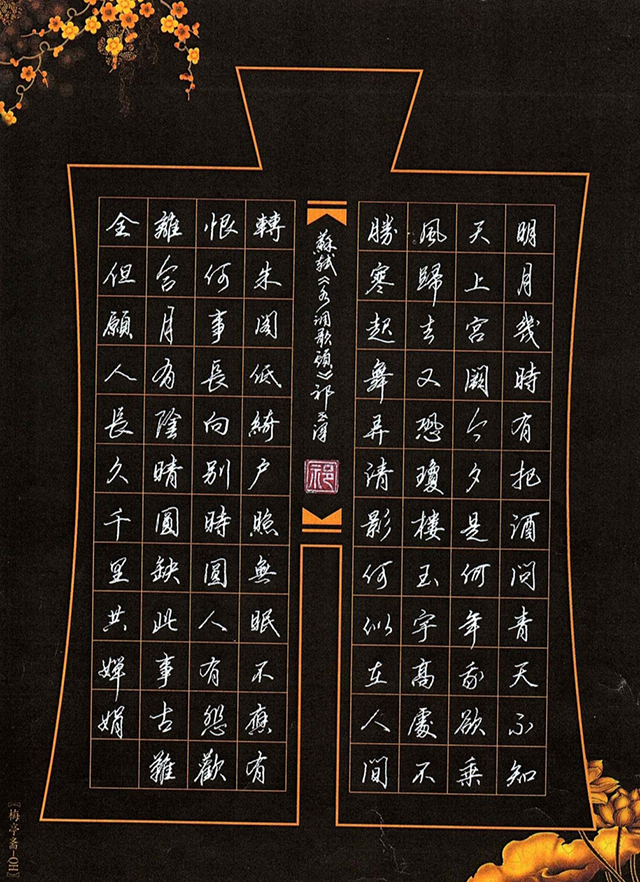 明月幾時有把酒問青天不知
天上宮闕今夕是何年我欲乘
風歸去又恐瓊樓玉宇高處不
勝寒起舞弄清影何似在人間
蘇軾《水调歌頭》祁
轉朱閣低綺户照無眠不應有
恨何事長向别時圓人有怨歡
離合月有陰晴圓缺此事古難
全但願人長久千里共嬋娟
『梅亭斋-QH』